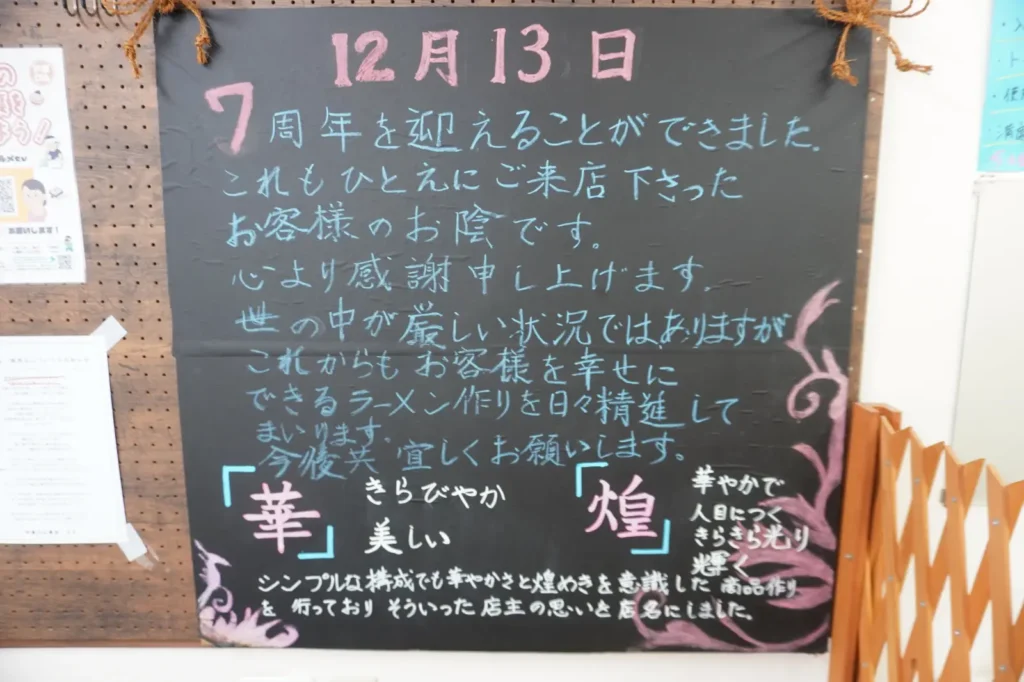 12月13日
7周年を迎えることができました。
これもひとえにご来店下さった
お客様のお陰です。
心より感謝申し上げます。
世の中が厳しい状況ではありますが
これからもお客様を幸せに
できるラーメン作りを日々精進して
まいります。
今後共宜しくお願いします。
「華」
きらびやか
美しい
「煌」
華やかで
人目につく
きらきら光り
輝く
シンプルな構成でも華やかさと煌めきを意識した商品作り
を行っておりそういった店主の思いを店名にしました。
お願いします!